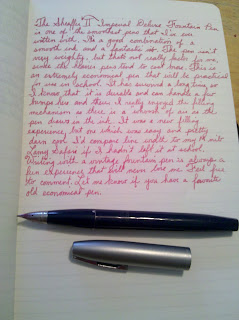 The Sheaffer II Imperial Deluxe Fountain Pen
is one of the smoothest pens that I've ever
written with. It's a good combination of a
smooth nib and a fantastic . The pen isn't
very weighty, but that's not really
the thinner pens tend to not have. This is
an extremely economical pen that will be practical
for use in school. It has survived a long time so
I know that it is durable and can handle a few
bumps here and there. I really enjoyed the filling
mechanism as there is a of air as the
pen draws in the ink. It was a new filling
experience, but one which was easy and pretty
darn cool. I'd compare line width to my nib
Lamy Safari if I hadn't left it at school.
Writing with a vintage fountain pen is always a
fun experience that will never lose me. Feel free
to comment. Let me know if you have a favorite
old economical pen.